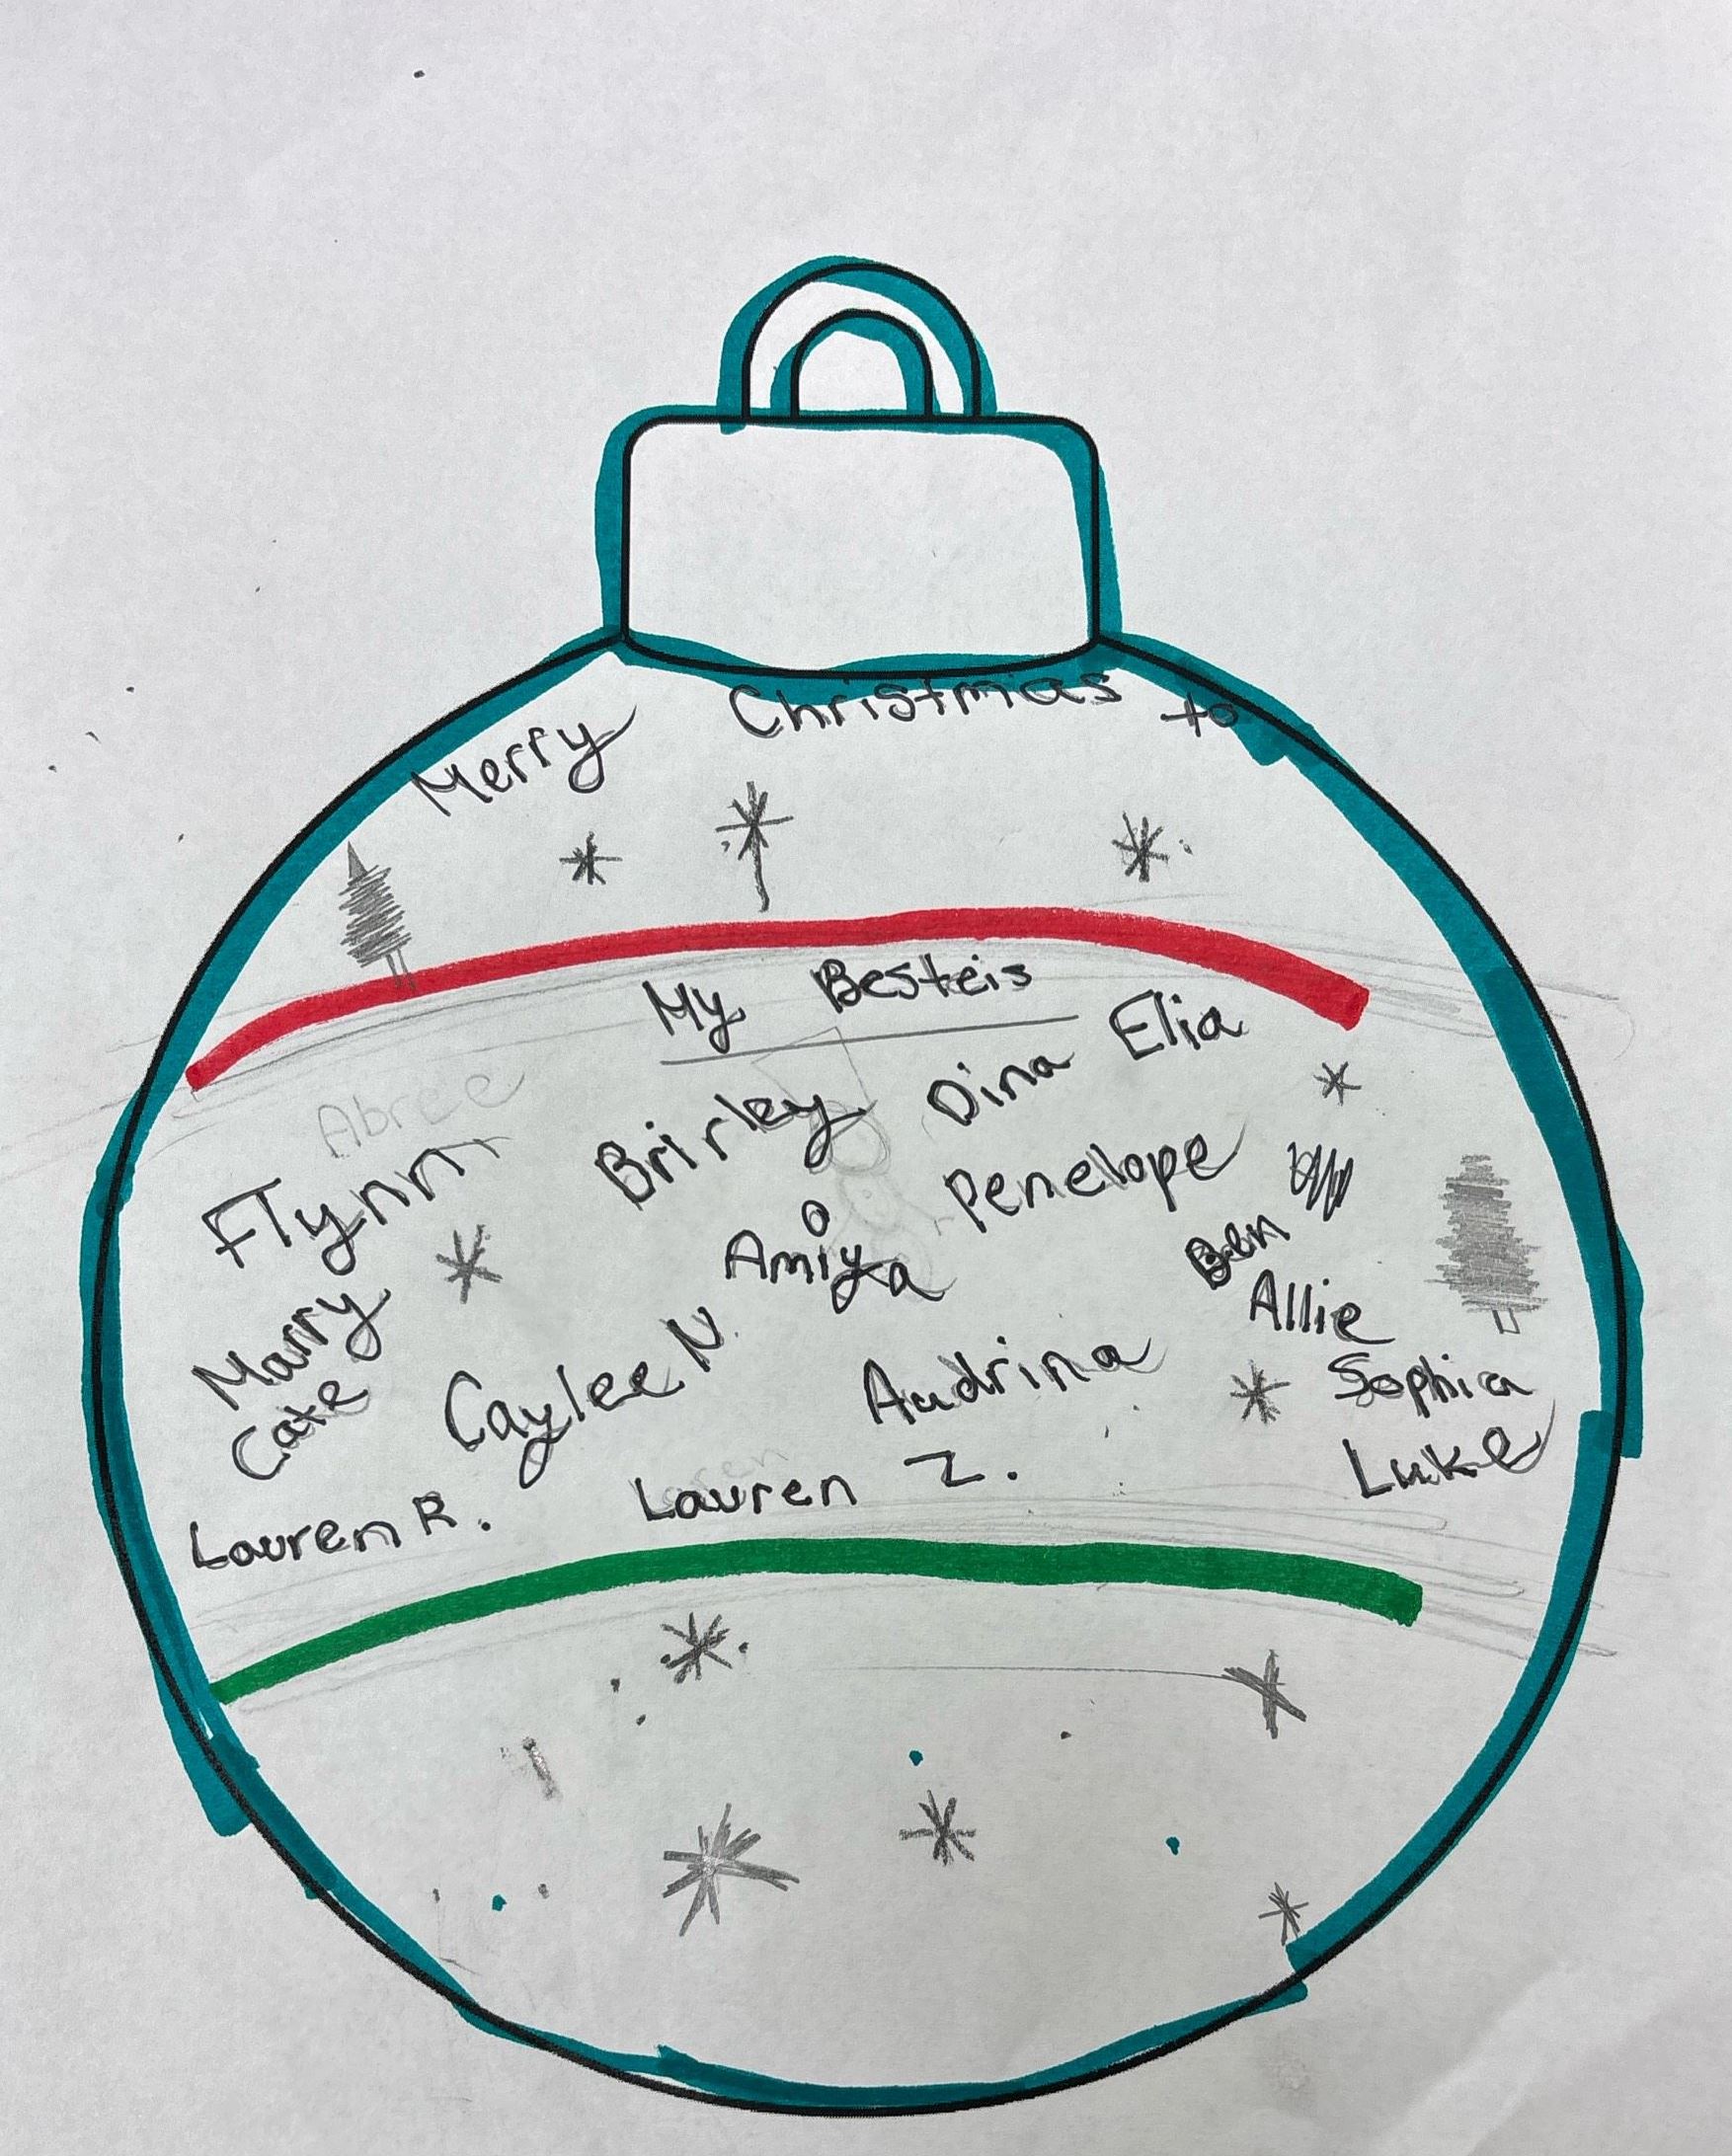 Merry Christmas to
My Besteis
Abree
Flynn
Brirley
Dina
Elia
Penelope
Amiya
Ben
Allie
Marry
Cate
Caylee N.
Audrina
Sophia
Luke
Lauren R.
Lauren Z.